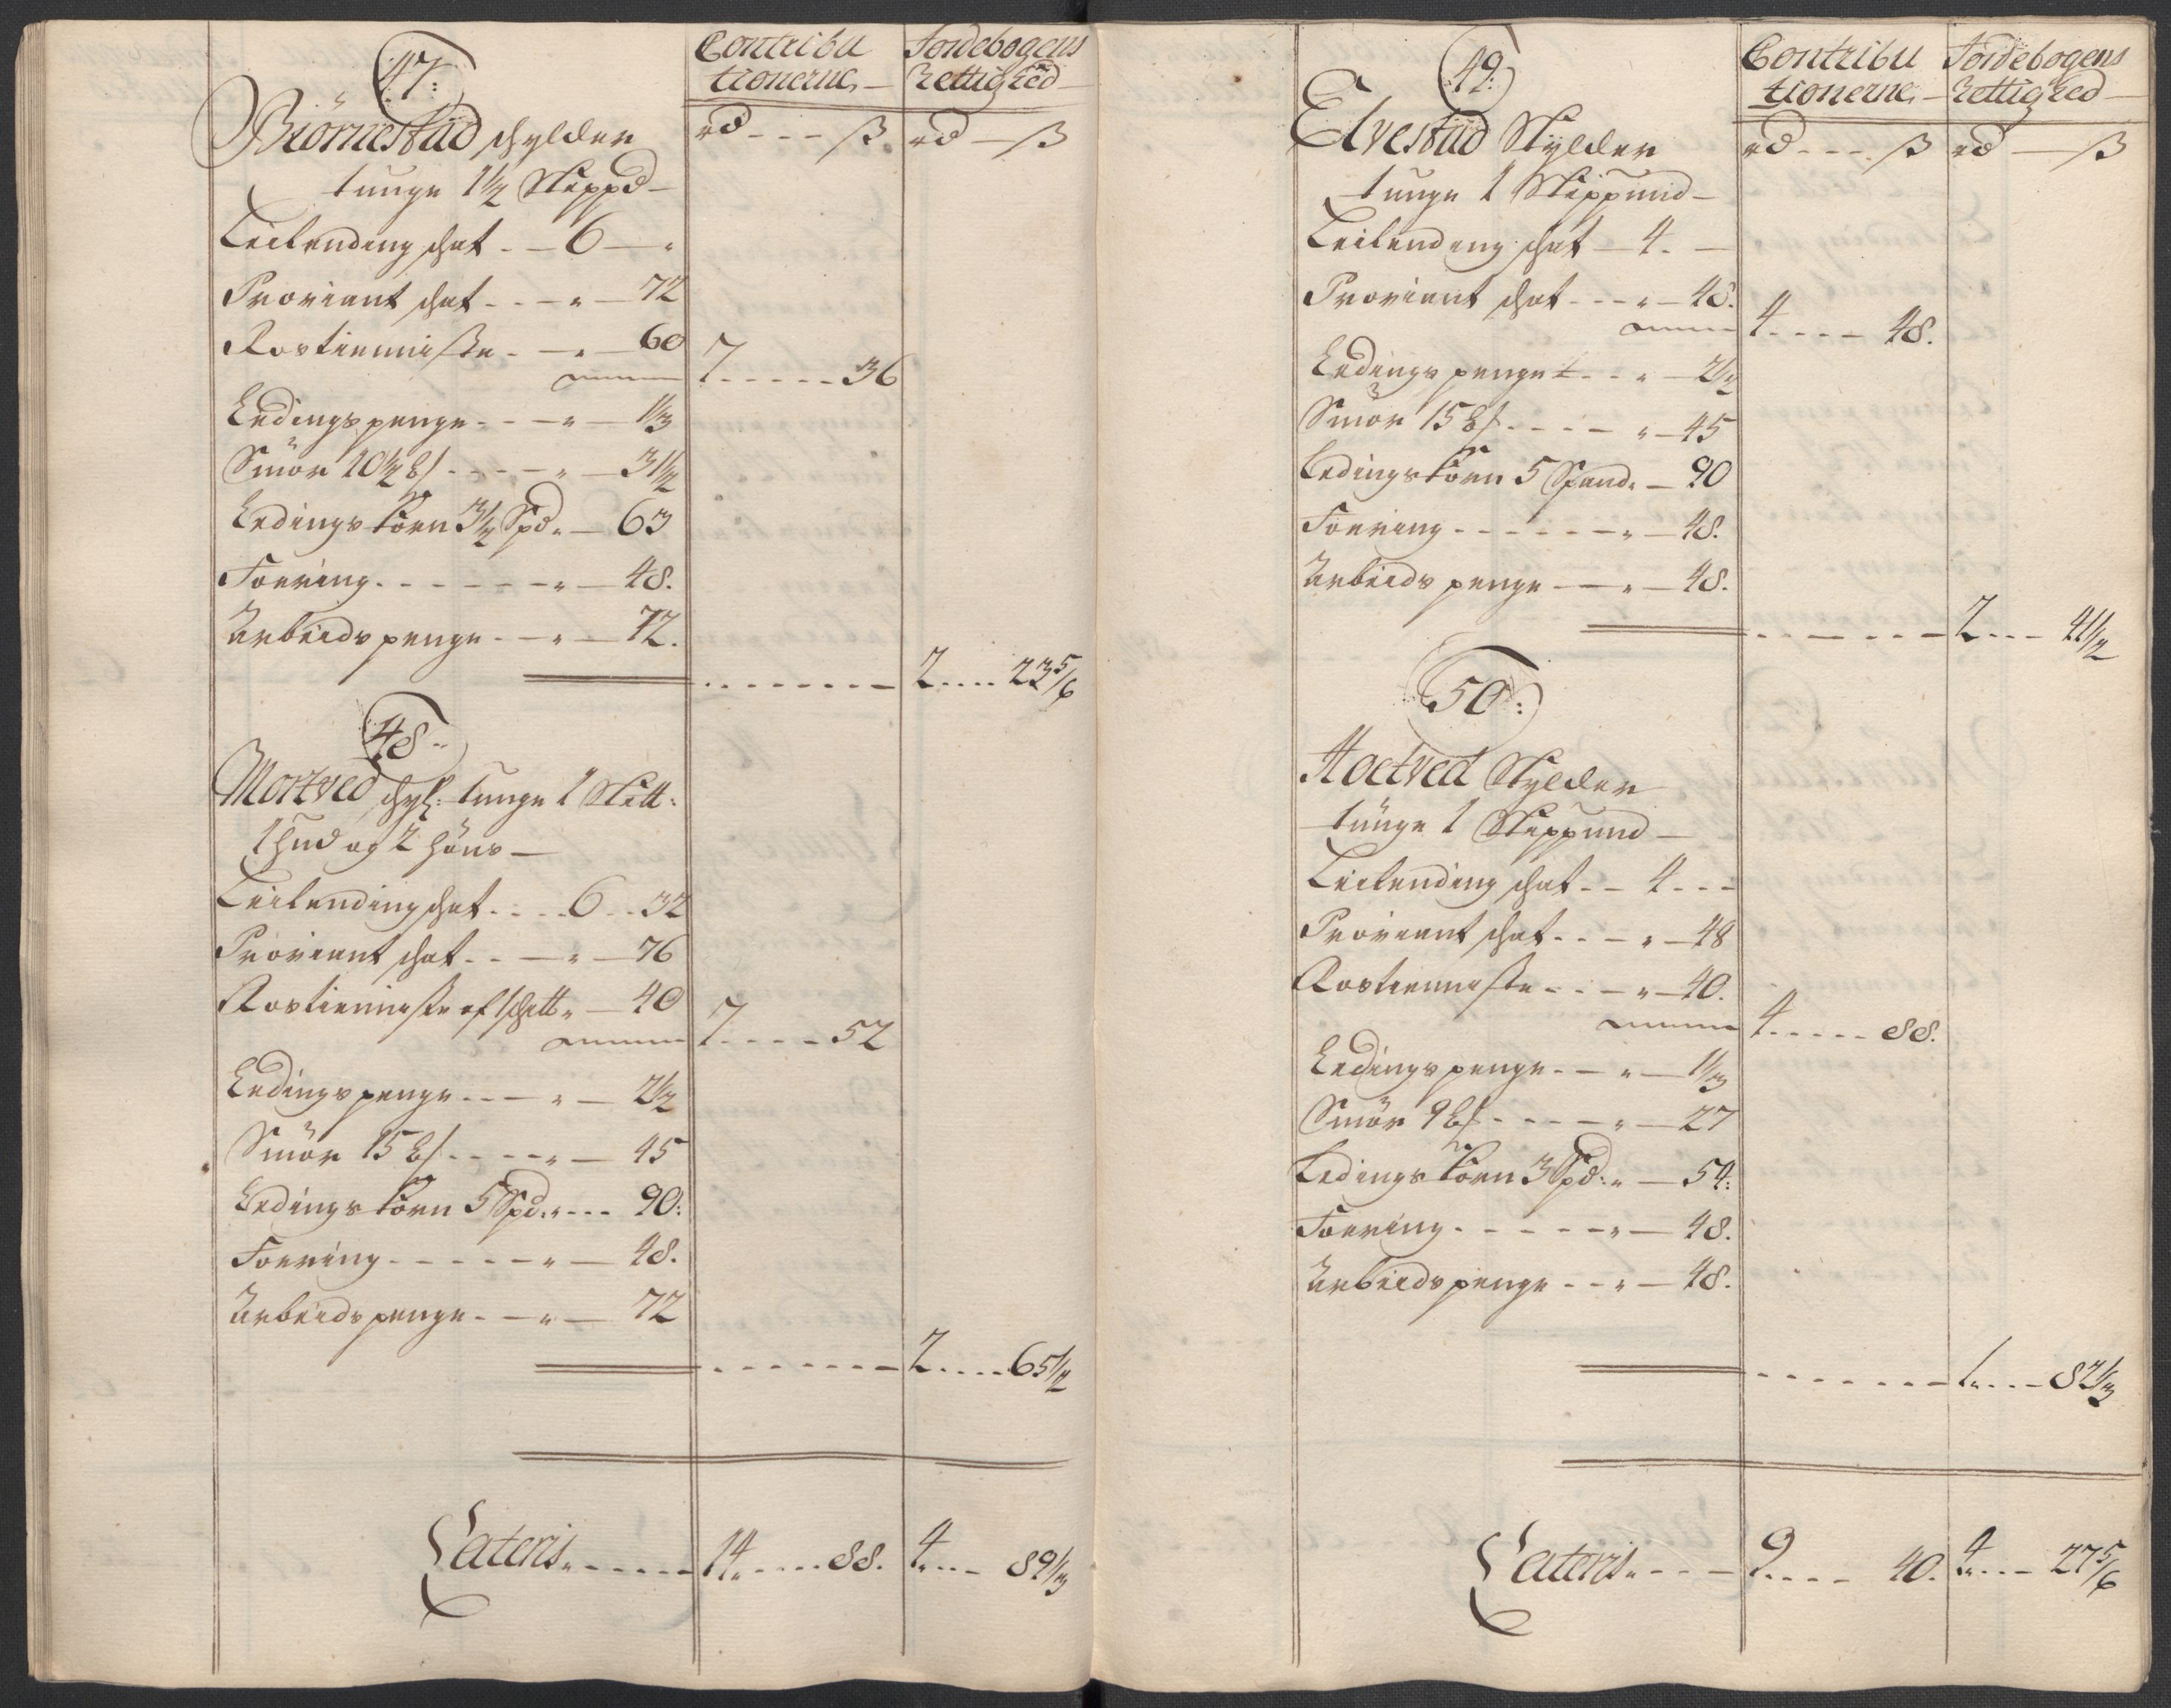 47:
Contribu
tionerne
Jordebogens
Rettighed
Biörnestad schylder
rd ß
rd ß
tunge 1½ Skippd
Leilending schat 6
Proviant schat 72
Rostienniste 60
7 36
Ledingspenge 1⅓
Smör 10½ 31½
Ledingskorn 3½ Spd 63
Foering 48.
Arbeids penge 72.
2 23 5/6
48
Mortved schyl: tunge 1 Skitt:
1 hud og 2 höns
Leilending schat 6 32
Proviant schat 76
Rostienniste af 40
7 52
Ledingspenge 2½
Smör 15 45
Ledingskorn 5 Spd 90:
Foering 48.
Arbeids penge 72
2 65½
Lateris 14 88. 4 89⅓
49:
Contribu
tionerne
Jordebogens
Rettighed
Elvestad Skylder
rd ß
rd ß
tunge 1 Skippund
Leilending schat 4.
Proviant schat 48.
4 48.
Ledings penget 2½
Smör 15 45
Ledingskorn 5 Spand 90
Foering 48.
Arbeids penge 48.
2 41½
50:
Hoctved Skylder
tunge 1 Skippund
Leilending schat 4
Proviant schat 48
Rostienniste 40.
4 88.
Ledingspenge 1⅓
Smör 9 27
Ledingskorn 3 Spd: 54:
Foering 48.
Arbeids penge 48.
1 82⅓
Lateris 9 40. 4 27 5/6